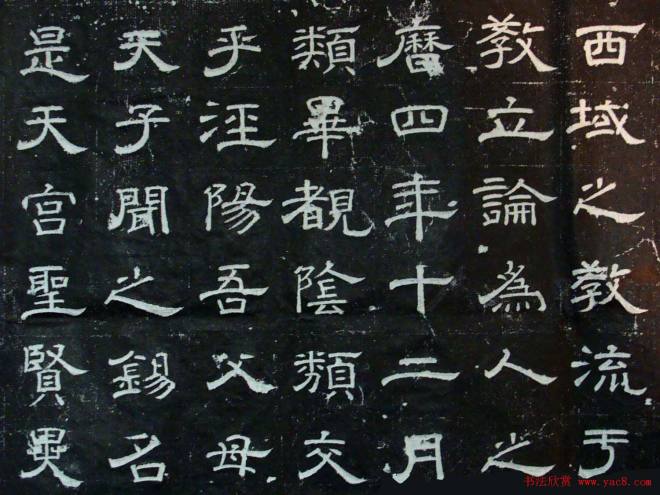 西域之教流于
教立論為人之
曆四年十二月
類畢覩陰類交
乎涇陽吾父母
天子聞之錫名
是天宮聖賢畢
书法欣赏 www.yac8.com